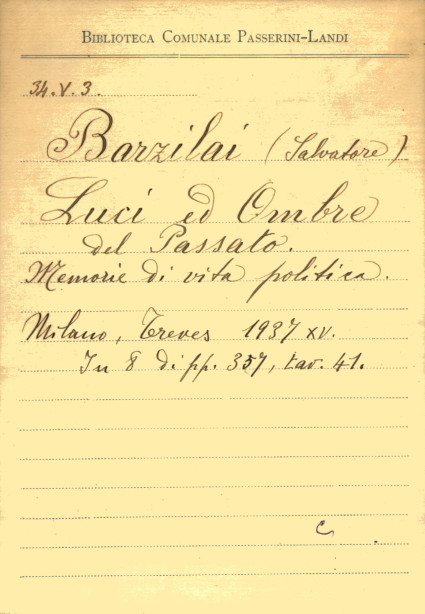 BIBLIOTECA COMUNALE PASSERINI-LANDI
34.V.3.
Barzilai (Salvatore)
Luci ed Ombre
del Passato.
Memorie di vita politica.
Milano, Treves 1937 XV.
In 8 di pp. 357, tav. 41.
C